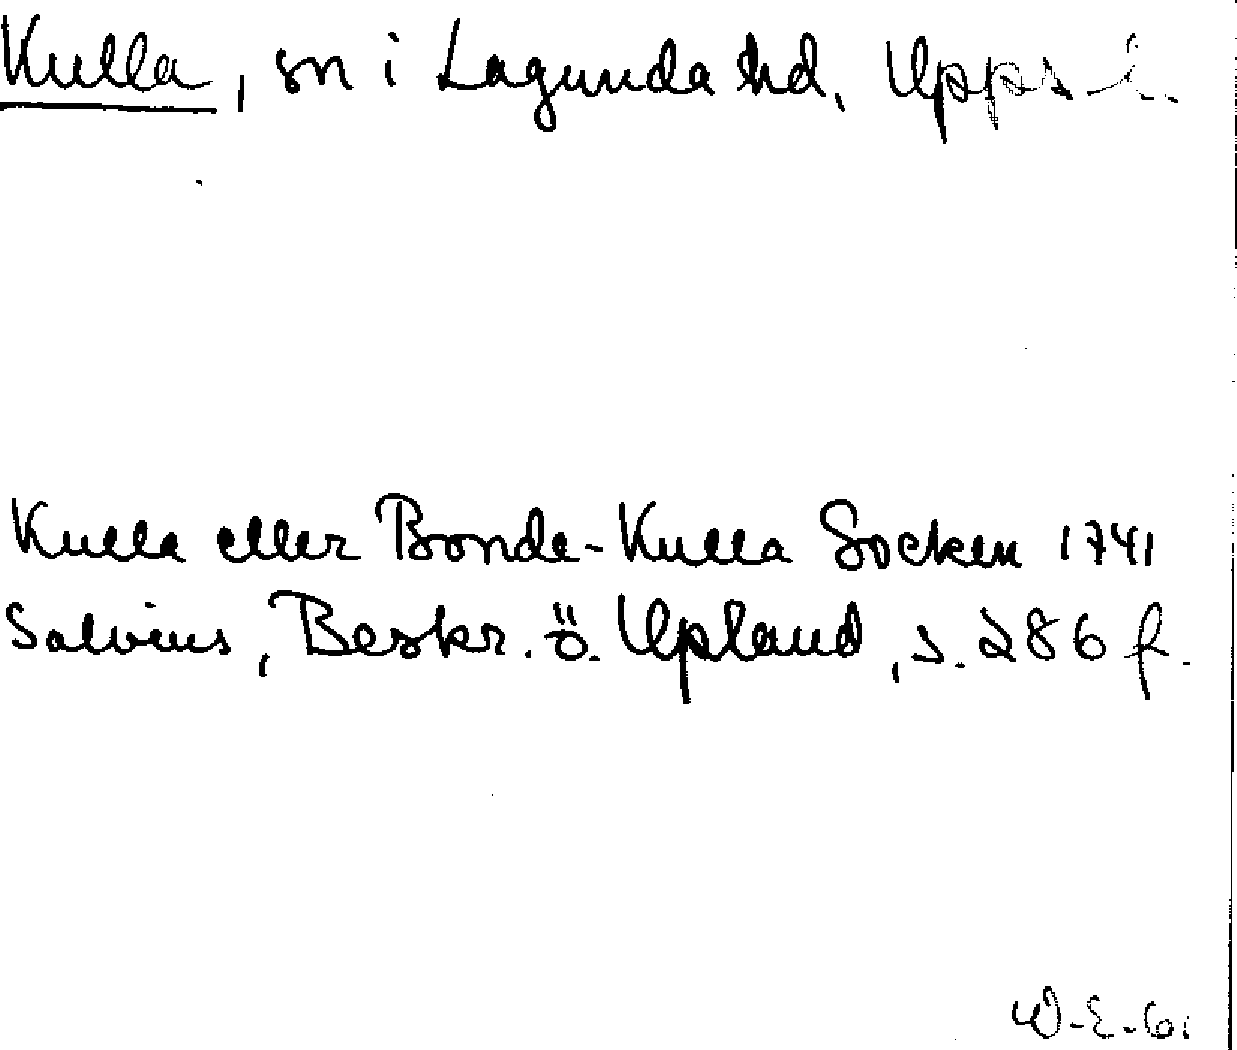 Kulla, sn i Lagunda hd, Upps. l.
Kulla eller Bonde-Kulla Socken 1741
Salvius, Beskr. ö. Upland, s. 286 f.